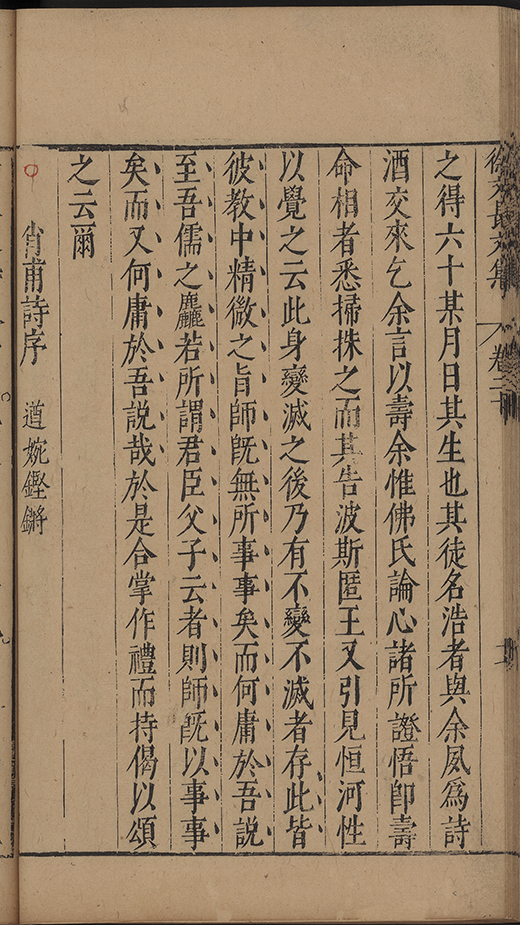 徐文長文集 卷二十
之得六十某月日其生也其徒名浩者與余夙爲詩
酒交來乞余言以壽余惟佛氏論心諸所證悟卽壽
命相者悉掃抹之而其告波斯匿王又引見恒河性
以覺之云此身變滅之後乃有不變不滅者存此皆
彼教中精微之旨師旣無所事事矣而何庸於吾說
至吾儒之麤若所謂君臣父子云者則師旣以事事
矣而又何庸於吾說哉於是合掌作禮而持偈以頌
之云爾
肖甫詩序 遒婉鏗鏘